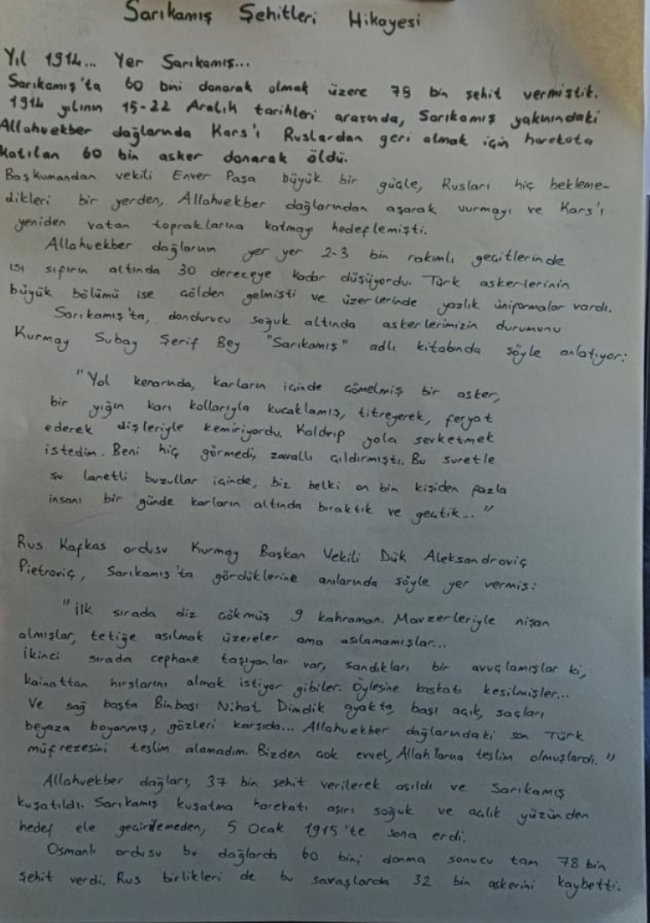 Sarıkamış Şehitleri Hikayesi
Yıl 1914... Yer Sarıkamış...
Sarıkamış'ta 60 bini donarak olmak üzere 78 bin şehit vermiştik.
1914 yılının 15-22 Aralık tarihleri arasında, Sarıkamış yakınındaki
Allahuekber dağlarında Kars'ı Ruslardan geri almak için harekata
katılan 60 bin asker donarak öldü.
Başkumandan vekili Enver Paşa büyük bir güçle, Rusları hiç bekleme-
dikleri bir yerden, Allahuekber dağlarından aşarak vurmayı ve Kars'ı
yeniden vatan topraklarına katmayı hedeflemişti.
Allahuekber dağların yer yer 2-3 bin rakımlı geçitlerinde
ısı sıfırın altında 30 dereceye kadar düşüyordu. Türk askerlerinin
büyük bölümü ise çölden gelmişti ve üzerlerinde yazlık üniformalar vardı.
Sarıkamış'ta, dondurucu soğuk altında askerlerimizin durumunu
Kurmay Subay Şerif Bey "Sarıkamış" adlı kitabında şöyle anlatıyor:
"Yol kenarında, karların içinde çömelmiş bir asker,
bir yığın karı kollarıyla kucaklamış, titreyerek, feryat
ederek dişleriyle kemiriyordu. Kaldırıp yola sevketmek
istedim. Beni hiç görmedi, zavallı çıldırmıştı. Bu suretle
şu lanetli buzullar içinde, biz belki on bin kişiden fazla
insanı bir günde karların altında bıraktık ve geçtik..."
Rus Kafkas ordusu Kurmay Başkan Vekili Dük Aleksandroviç
Pietroviç, Sarıkamış'ta gördüklerine anılarında şöyle yer vermiş:
"İlk sırada diz çökmüş 9 kahraman. Mavzerleriyle nişan
almışlar, tetiğe asılmak üzereler ama asılamamışlar...
İkinci sırada cephane taşıyanlar var, sandıkları bir avuçlamışlar ki,
kainattan hırslarını almak istiyor gibiler. Öylesine kaskatı kesilmişler...
Ve sağ başta Binbaşı Nihat. Dimdik ayakta, başı açık, saçları
beyaza boyanmış, gözleri karşıda... Allahuekber dağlarındaki son Türk
müfrezesini teslim alamadım. Bizden çok evvel, Allah'larına teslim olmuşlardı."
Allahuekber dağları, 37 bin şehit verilerek aşıldı ve Sarıkamış
kuşatıldı. Sarıkamış kuşatma harekatı aşırı soğuk ve açlık yüzünden
hedef ele geçirilemeden, 5 Ocak 1915'te sona erdi.
Osmanlı ordusu bu dağlarda 60 bini donma sonucu tam 78 bin
şehit verdi. Rus birlikleri de bu savaşlarda 32 bin askerini kaybetti.